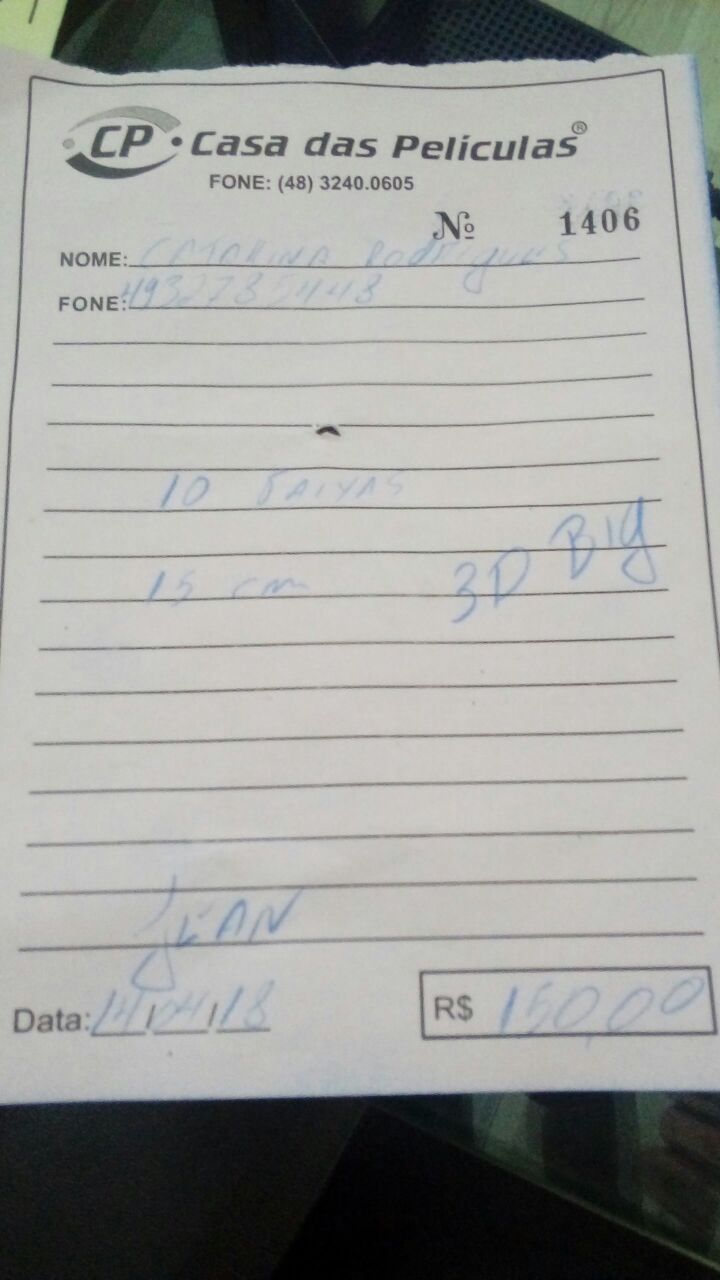 CP • Casa das Películas®
FONE: (48) 3240.0605
Nº 1406
NOME: CATARINA Rodrigues
FONE:
10 FAIXAS
3D Big
15 cm
JEAN
Data: 14/04/18
R$ 150,00